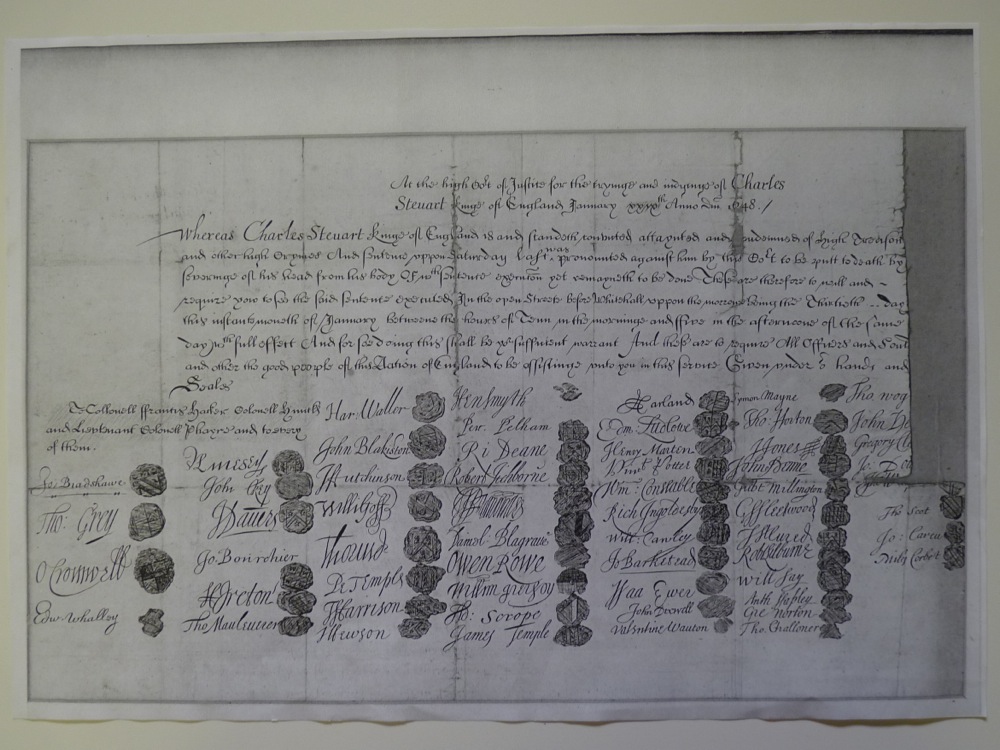 At the high Cor̃t of Justice for the tryinge and iudginge of Charles
Steuart Kinge of England January xxixth Anno Dm̃ 1648./
Whereas Charles Steuart Kinge of England is and standeth convicted attaynted and condemned of High Treason
and other high Crymes And sentence uppon Saturday last was pronounced against him by this Cor̃t to be putt to death by
severinge of his head from his body Of wch sentence execucon̄ yet remayneth to be done These are therefore to will and
require yow to see the said sentence executed In the open Streete before Whitehall uppon the morrowe being the Thirtieth day
this instante moneth of January betweene the houres of Tenn in the morninge and ffive in the afternoone of the same
day wth full effect And for soe doing this shall be yor sufficient warrant And these are to require All Officers and Sould
and other the good people of this Nation of England to be assistinge unto yow in this service Given under or hands and
Seales
To Collonell ffrancis Hacker Colonell Huncks
and Lieutenant Colonell Phayre and to every
of them.
Jo: Bradshawe
Tho: Grey
O Cromwell
Edw: Whalley
M Livesey
John Okey
J Davers
Jo Bourchier
H Ireton
Tho Mauleverer
Har: Waller
John Blakiston
J Hutchinson
Willi Goff
Tho Pride
Pe Temple
T Harrison
J Hewson
Hen Smyth
Per. Pelham
Ri Deane
Robert Tichborne
H Edwardes
Daniel Blagrave
Owen Rowe
William Purefoy
Ad: Scrope
James Temple
A Garland
Edm: Ludlowe
Henry Marten
Vinct Potter
Wm: Constable
Rich Ingoldesby
Will: Cawley
Jo Barkstead
Isaa Ewer
John Dixwell
Valentine Wauton
Symon Mayne
Tho Horton
J Jones
John Penne
Gilbt Millington
G Fleetwood
J Alured
Robt Lilburne
Will Say
Anth Stapley
Gre Norton
Tho Challoner
Tho Wog
John Ve
Gregory Cl
Jo: Do
Tho Scot
Jo: Carew
Miles Corbet